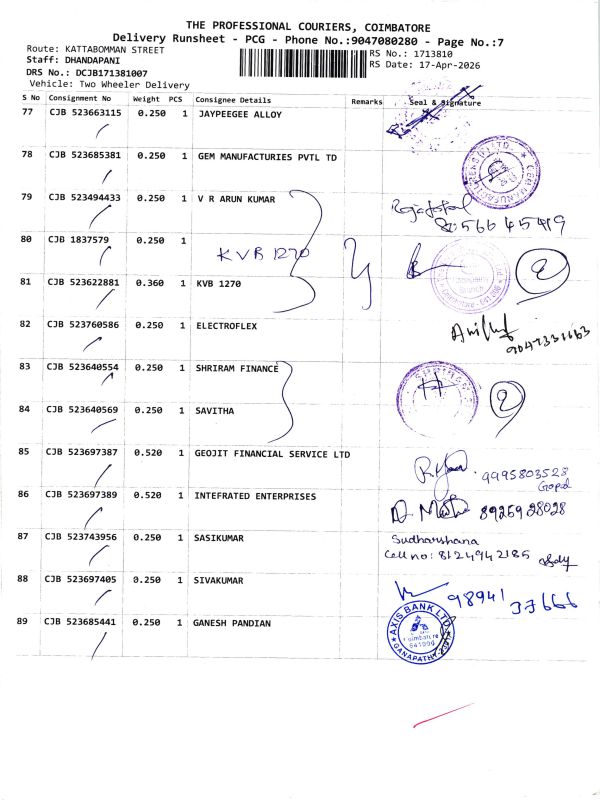 THE PROFESSIONAL COURIERS, COIMBATORE
Delivery Runsheet - PCG - Phone No.:9047080280 - Page No.:7
Route: KATTABOMMAN STREET
RS No.: 1713810
Staff: DHANDAPANI
RS Date: 17-Apr-2026
DRS No.: DCJB171381007
Vehicle: Two Wheeler Delivery
S No Consignment No Weight PCS Consignee Details Remarks Seal & Signature
77 CJB 523663115 0.250 1 JAYPEEGEE ALLOY
78 CJB 523685381 0.250 1 GEM MANUFACTURIES PVTL TD
79 CJB 523494433 0.250 1 V R ARUN KUMAR
Rajagopal
80566 45419
80 CJB 1837579 0.250 1 KVB 1270
2
81 CJB 523622881 0.360 1 KVB 1270
82 CJB 523760586 0.250 1 ELECTROFLEX
9047331163
83 CJB 523640554 0.250 1 SHRIRAM FINANCE
2
84 CJB 523640569 0.250 1 SAVITHA
85 CJB 523697387 0.520 1 GEOJIT FINANCIAL SERVICE LTD
9995803528
Gopal
86 CJB 523697389 0.520 1 INTEFRATED ENTERPRISES
8925928028
87 CJB 523743956 0.250 1 SASIKUMAR
Sudharshana
Cell no: 8124942185
88 CJB 523697405 0.250 1 SIVAKUMAR
98941 37666
89 CJB 523685441 0.250 1 GANESH PANDIAN
AXIS BANK LTD.
Coimbatore
GANAPATHY